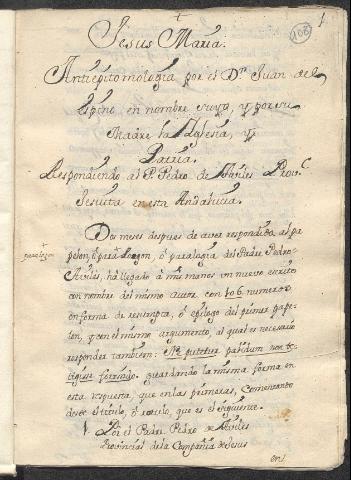 1
108
Jesus Maria.
Antiepitomologia por el Dr. Juan del
Espino en nombre suyo, y por su
Madre la Yglesia, y
Patria.
Respondiendo al P. Pedro de Aviles Prov.l
Jesuita en esta Andalucia.
Dos meses despues de aver respondido al pa
pelon, o paralogon, ò paralogia del Padre Pedro
paralogon
Aviles, há llegado à mis manos un nuevo escrito
con nombre del mismo autor, con 106. numeros
en forma de respuesta, ò epilogo del primer pape
lon, y con el mismo argumento, al qual es necesario
responder tambien: Ne putetur palidum non te
tigisse formido. guardando la misma forma en
esta respuesta, que en las primeras, comenzando
desde el titulo, ò rotulo, que es el siguiente.
1. Por el Padre Pedro de Aviles
Provincial de la Compañia de Jesus
en l